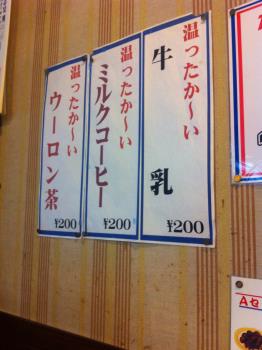 温ったか〜い
牛乳
¥200
温ったか〜い
ミルクコーヒー
¥200
温ったか〜い
ウーロン茶
¥200
Aセ